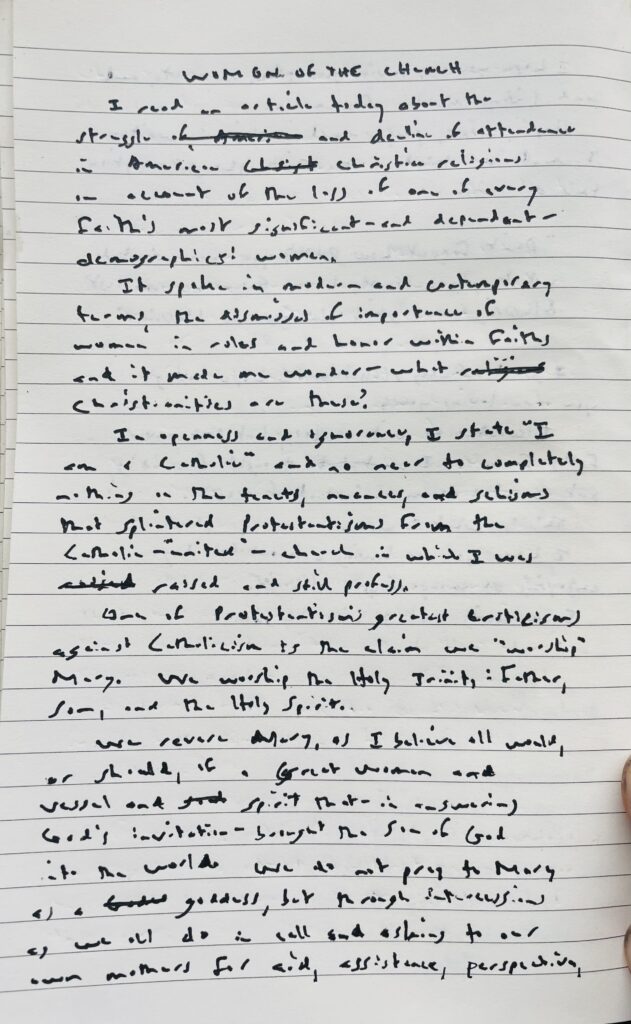 WOMEN OF THE CHURCH
I read an article today about the
struggle of and decline of attendance
in American Christian religions
on account of the loss of one of every
faith's most significant - and dependent -
demographics: women.
It spoke in modern and contemporary
terms, the dismissal of importance of
women in roles and honor within faiths
and it made me wonder - what
Christianities are these?
In openness and ignorance, I state "I
am a Catholic" and no near to completely
nothing on the tenets, nuances, and schisms
that splintered Protestantisms from the
Catholic - "united" - church in which I was
raised and still profess.
One of Protestantism's greatest criticisms
against Catholicism is the claim we "worship"
Mary. We worship the Holy Trinity: Father,
Son, and the Holy Spirit.
We revere Mary, as I believe all would,
or should, if a great women and
vessel and spirit that - in answering
God's invitation - brought the Son of God
into the world. We do not pray to Mary
as a goddess, but through intercessions
as we all do in call and asking to our
own mothers for aid, assistance, perspective,